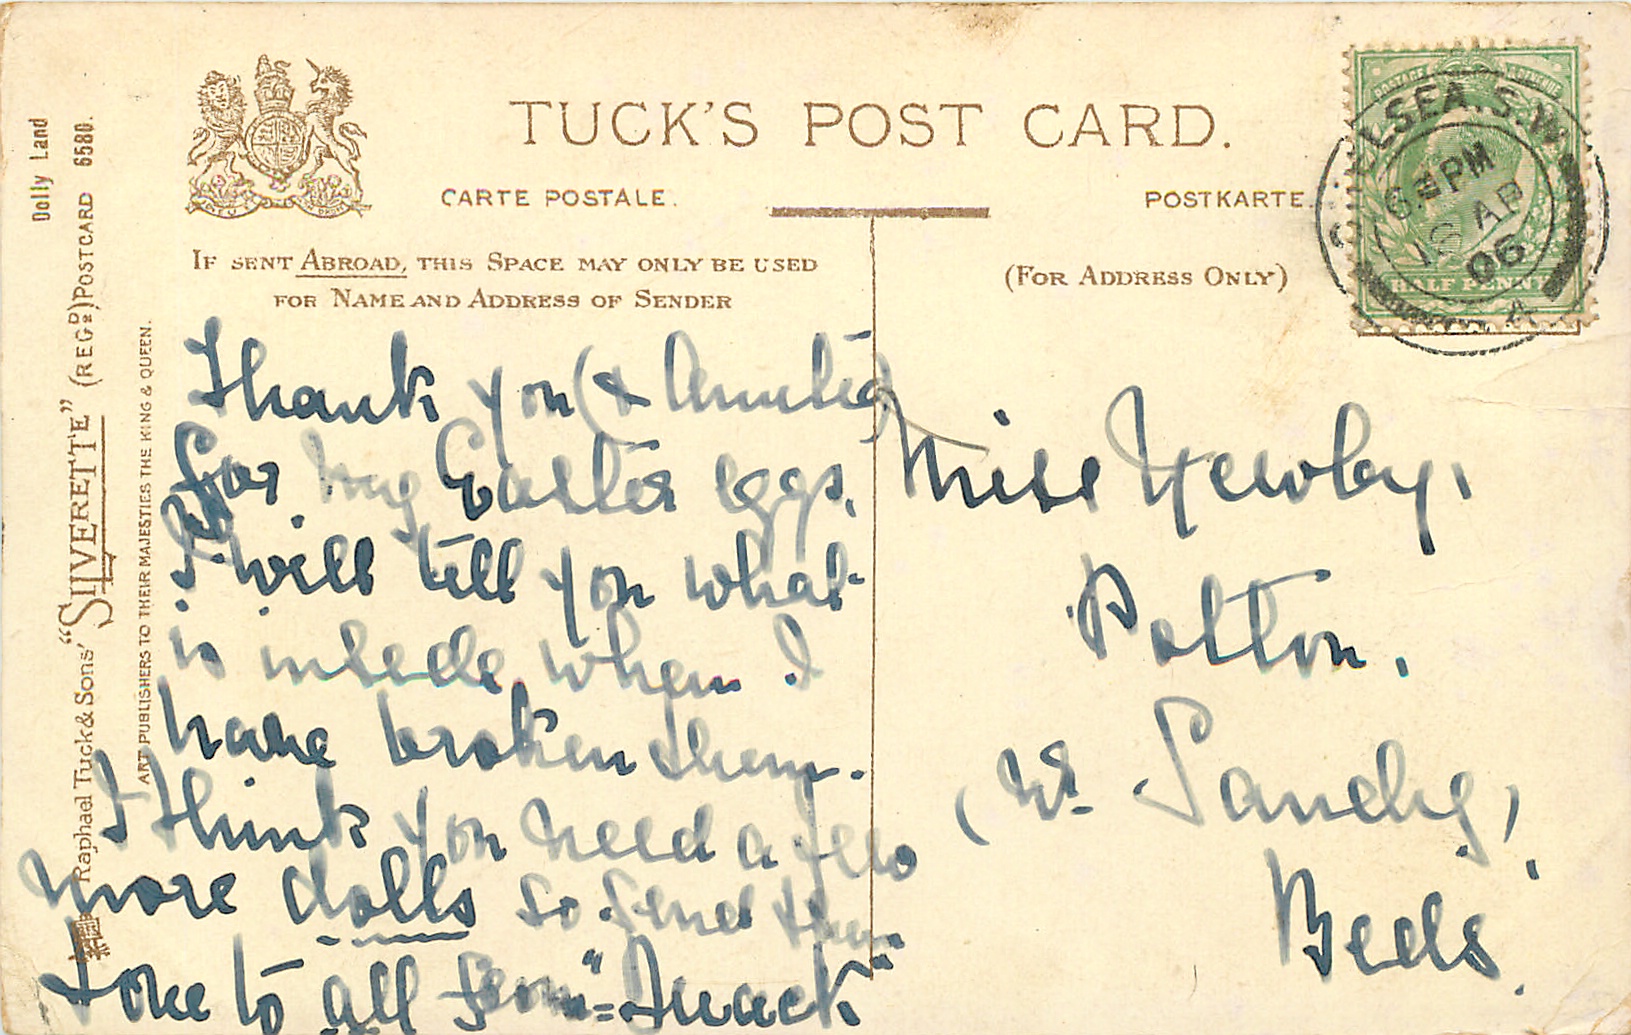 TUCK'S POST CARD.
CARTE POSTALE.
POSTKARTE.
IF SENT ABROAD, THIS SPACE MAY ONLY BE USED
FOR NAME AND ADDRESS OF SENDER
(FOR ADDRESS ONLY)
Dolly Land
Raphael Tuck & Sons' "SILVERETTE" (REGD) POSTCARD 6580.
ART PUBLISHERS TO THEIR MAJESTIES THE KING & QUEEN.
CHELSEA. S.W.
PM
AP
06
HALF PENNY
Thank you (& Auntie)
for my Easter eggs.
I will tell you what
is inside when I
have broken them.
I think you need a few
more dolls so send them
love to all from "Quack"
Miss Newby,
Potton,
(Nr. Sandy)
Beds.